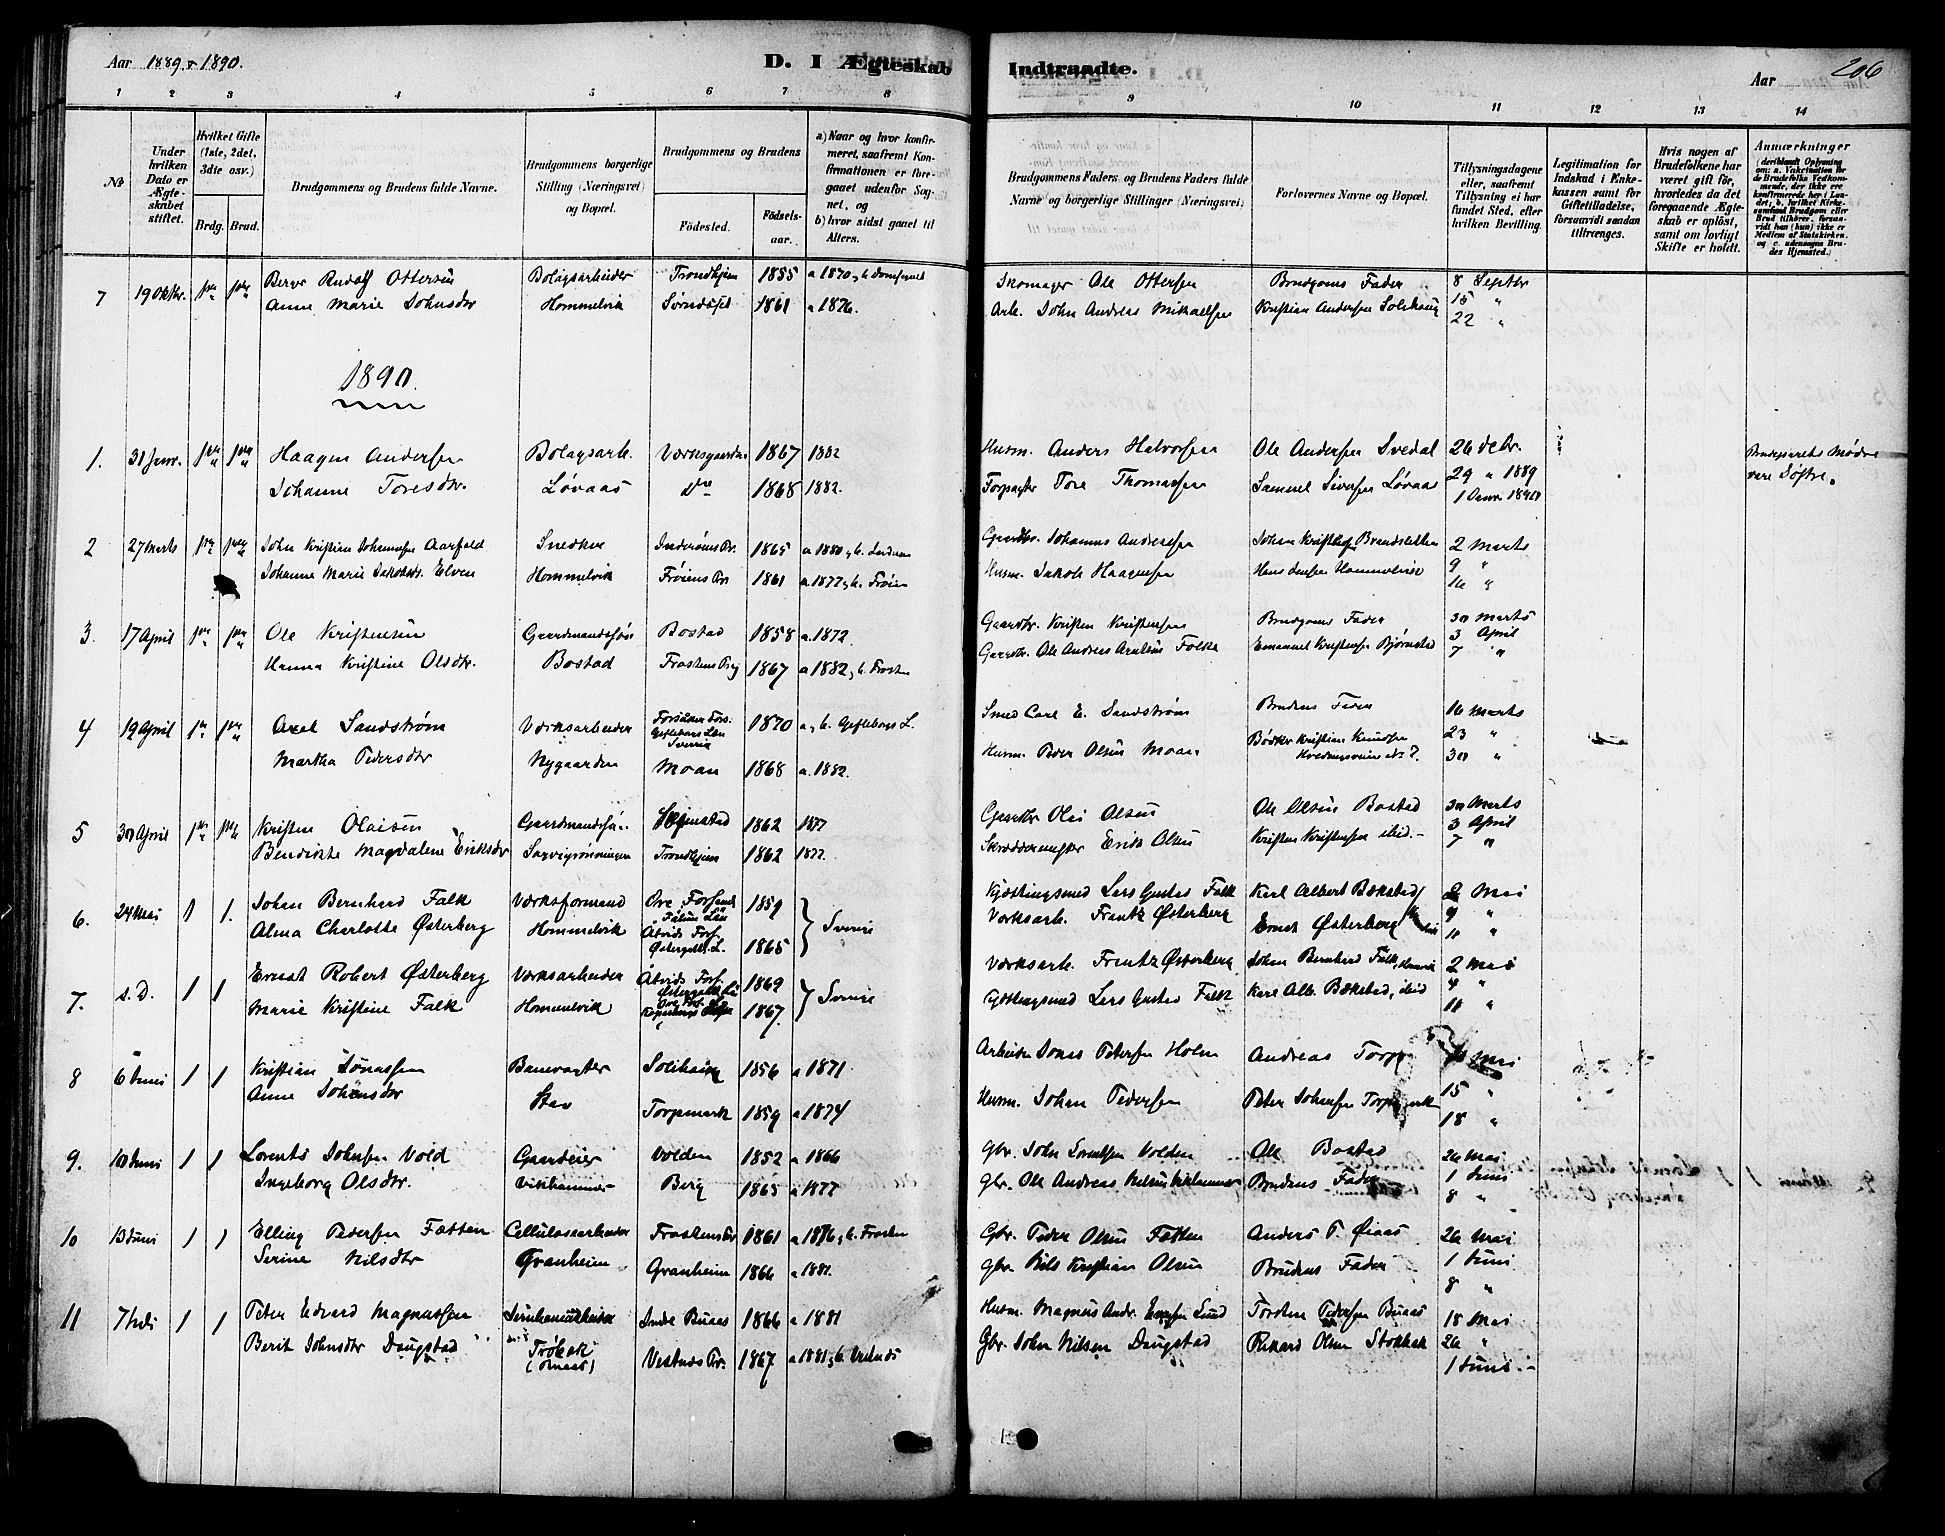 Aar 1889 & 1890.
D. I Ægteskab Indtraadte.
Aar
206
1 2 3 4 5 6 7 8 9 10 11 12 13 14
No
Under hvilken Dato er Ægteskabet stiftet.
Hvilket Gifte (1ste, 2det, 3die osv.)
Brdg. Brud.
Brudgommens og Brudens fulde Navne.
Brudgommens borgerlige Stilling (Næringsvei) og Bopæl.
Brudgommens og Brudens
Fødested.
Fødselsaar.
a) Naar og hvor konfirmeret, saafremt Konfirmationen er foregaaet udenfor Sognet, og
b) hvor sidst gaaet til Alters.
Brudgommens Faders og Brudens Faders fulde Navne og borgerlige Stillinger (Næringsvei)
Forlovernes Navne og Bopæl.
Tillysningsdagene eller, saafremt Tillysning ei har fundet Sted, efter hvilken Bevilling.
Legitimation for Indskud i Enkekassen samt for Giftetilladelse, forsaavidt saadan tiltrænges.
Hvis nogen af Brudefolkene har været gift før, hvorledes da det foregaaende Ægteskab er opløst, samt om lovligt Skifte er holdt.
Anmærkninger
(deriblandt Oplysning om: a. Vakcination for de Brudefolks Vedkommende, der ikke ere konfirmerede her i Landet; b. hvilket Kirkesamfund Brudgom eller Brud tilhører, forsaavidt han (hun) ikke er Medlem af Statskirken, og c. udensogns Brudes Hjemsted.)
7 19 Oktbr. Rudolf Ottersen Bolagsarbeider Trondhjem 1855 a 1870 Skomager Ole Ottersen Brudgoms Fader 8 Septbr
Anne Marie Johnsdtr Hommelvik 1861 a 1876. Arb. John Andreas Mikaelsen Kristian Andersen Solihaug 15 "
22 "
1890.
1. 31 Janr. Haagen Andersen Bolagsarb. Værksgaarden 1867 1882 Husm. Anders Halvorsen Ole Andersen Svedal 26 Debr. Brudeparrets Mødre
Johanne Toresdtr. Løvaas do 1868 1882. Forpagter Tore Thomassen Samuel Sivertsen Løvaas 29 " 1889 vare Søstre.
1 Janr. 1890
2 27 Marts John Kristian Johannesen Aarfald Snedker Inderøens Pr. 1865 a 1880, b. Gaardbr. Johannes Andersen Johan Kristofer Brandsletten 2 Marts
Johanne Marie Jakobsdr. Elven Hommelvik Frøiens Pr. 1861 a 1877, b. Frøien Husm. Jakob Haagensen Hans Jensen Hommelvik 9 "
16 "
3. 17 April Ole Kristensen Gaardmandssøn Bostad 1858 a. 1872. Gaardbr. Kristen Kristensen Brudgoms Fader 30 Marts
Hanna Kristine Olsdtr. Bostad Frostens Prg 1867 a 1882, b. Frosten Gaardbr. Ole Andreas Falka Emanuel Kristensen Bjørnstad 3 April
7 "
4 19 April Axel Sandstrøm Værksarbeider Gefleborgs Län Sverige 1870 a, b. Gefleborgs L. Smed Carl E. Sandstrøm Brudens Fader 16 Marts
Martha Pedersdtr Nygaarden Moan 1868 a. 1882. Husm. Peder Olsen Moan Bødker Kristian Knudsen 23 "
30 "
5 30 April Kristen Olaisen Gaardmandssøn 1862 1877 Gaardbr Olai Olsen Ole Olsen Bostad 30 Marts
Bendikte Magdalene Eriksdr Trondhjem 1862 1877. Skræddermester Erik Olsen Kristen Kristensen ibid. 3 April
7 "
6. 24 Mai 1 1. Johan Bernhard Falk Værksformand 1859 Sverige Kjættingsmed Lars Gustaf Falk Karl Albert Bækstad 2 Mai
Alma Charlotte Østerberg Hommelvik Åtvids Fors. Østergötl. L. 1865 Værksarb. Frantz Østerberg Ernst Østerberg 4 "
11 "
7. s. D. 1 1 Ernst Robert Østerberg Værksarbeider Åtvids Fors. 1869 Sverige Værksarb. Frantz Østerberg Johan Bernhard Falk 2 Mai
Marie Kristine Falk Hommelvik 1867. Kjættingsmed Lars Gustaf Falk Karl Alb. Bækstad, ibid 4 "
11 "
8 6 Juni 1 1 Kristian Jonassen Banevogter Solihaug 1856 a 1871 Arbeider Jonas Petersen Holm Andreas Torp Mai
Anne Johansdtr Stav Torpmark 1859 a 1874 Husm. Johan Pedersen Peter Johnsen 15 "
18 "
9. 10 Juni 1 1 Lorents Johnsen Vold Gaardeier Volden 1852 a 1866 Gbr. John Lorentsen Volden Ole Bostad 26 Mai
Ingeborg Olsdtr. Vikhammer Berg 1865 a 1877 Gbr. Ole Andreas Nilsen Vikhammer Brudens Fader 1 Juni
8 "
10 13 Juni 1 1 Elling Pedersen Fætten Cellulosearbeider Frostens Pr 1861 a 1876, b. Frosten Gbr. Peder Olsen Fætten Anders P. Øiaas 26 Mai
Serine Nilsdtr Granheim Granheim 1866 a 1881. Gbr Nils Kristian Olsen Brudens Fader 1 Juni
8 "
11 7 Juli 1 1 Peter Edvard Magnussen Indre Buaas 1866 a 1881 Husm. Magnus Andr. Lund Torsten Pedersen Buaas 18 Mai
Berit Johnsdtr Daugstad Trøbak Vestnæs Pr. 1867 a 1881, b. Vestnæs Gbr John Nilsen Daugstad Rikard Olsen Stokkak 26 "
1 Juni